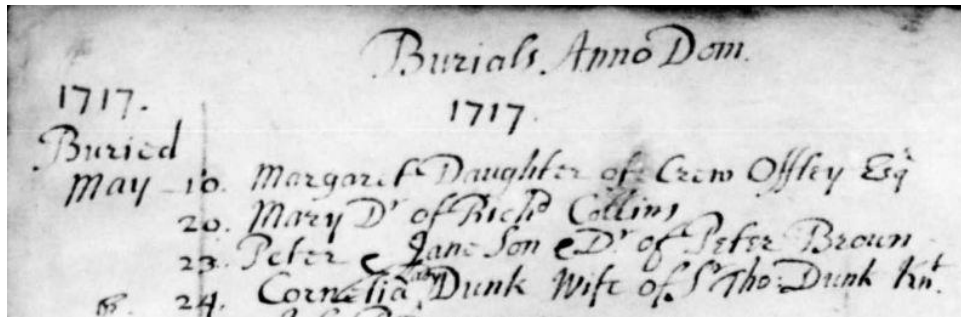 Burials. Anno Dom.
1717.
1717.
Buried
May 10. Margaret Daughter of Crew Offley Esqr
20. Mary Dr of Richd Collins
23. Peter & Jane Son & Dr of Peter Brown
24. Cornelia Lady Dunk Wife of Sr Tho: Dunk Knt.